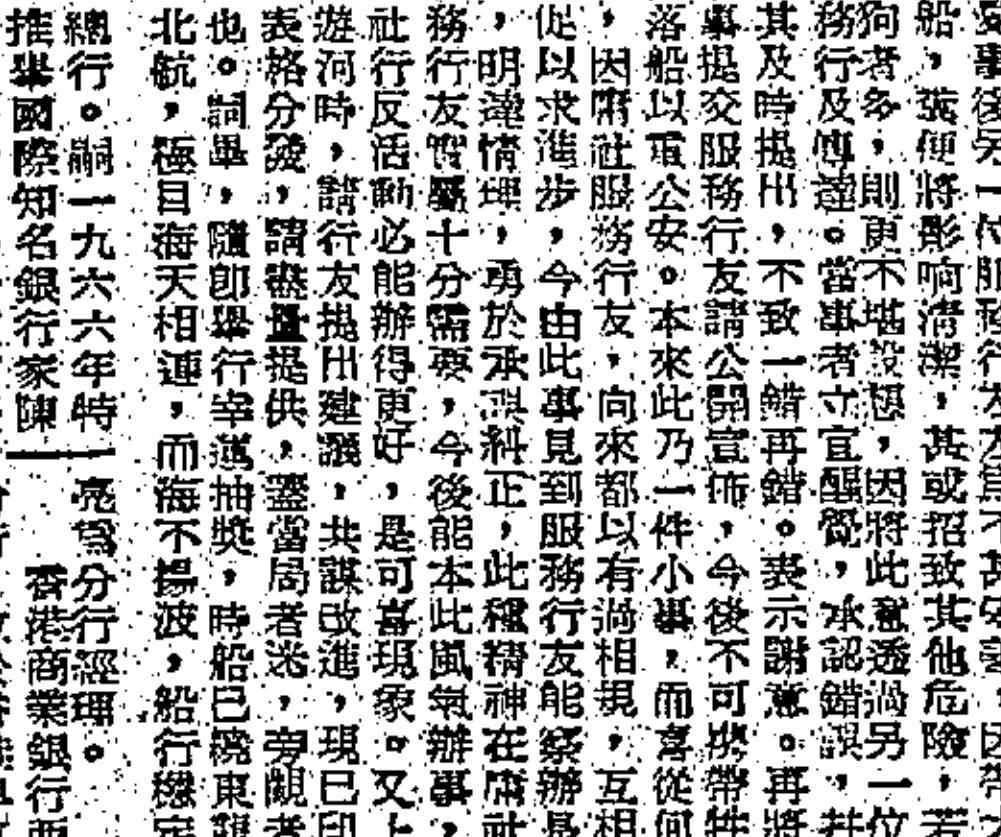 後另一
船，並便將影响清潔，其或招致其他危險，
狗者多，則更不堪設想，因將此意透過另一位
務行及傳達。當事者立官醒覺，承認錯誤，
其及時提出，不致一錯再錯。表示謝意。再將
事提交服務行友請公開宣佈，今後不可携帶
落船以重公安。本來此乃一件小事，而喜從何
，因需社服務行友，向來都以有過相規，互相
促以求進步，今由此事見到服務行友能察辦是
，明達情理，勇於承認糾正，此種精神在需社
務行友實屬十分需要，今後能本此風氣辦事，
社行反活動必能辦得更好，是可喜現象。又上
遊河時，請行友提出建議，共謀改進，現已印
表格分發，請盡量提供，蓋當局者迷，旁觀者
也。詞畢，隨即舉行幸運抽獎，時船已繞東龍
北航，極目海天相連，而海不揚波，船行穩定
總行。嗣一九六六年特
亮為分行經理。
推舉國際知名銀行家陳
香港商業銀行